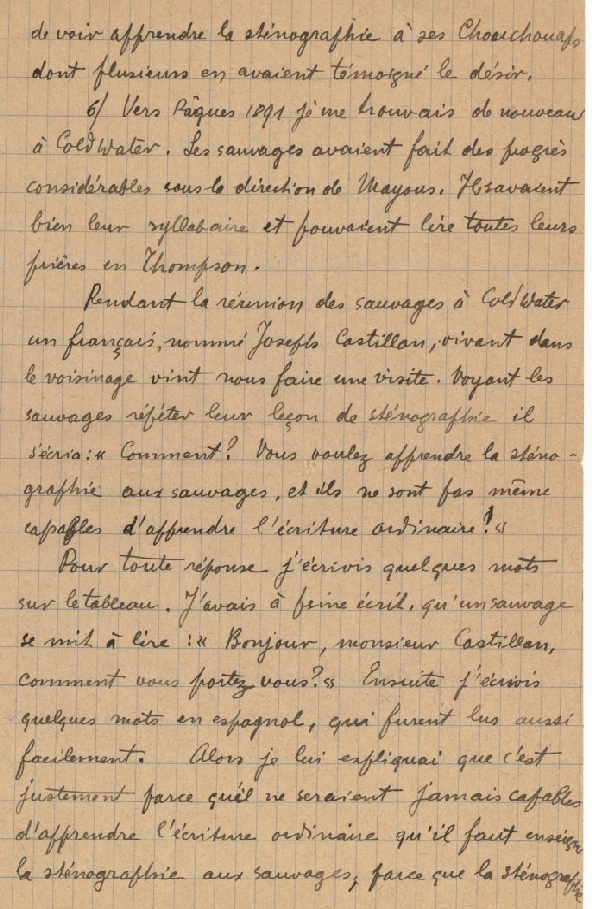 de voir apprendre la sténographie à ses Chouchouaps
dont plusieurs en avaient témoigné le désir.
6/ Vers Pâques 1891 je me trouvais de nouveau
à ColdWater. Les sauvages avaient fait des progrès
considérables sous la direction de Mayous. Ils savaient
bien leur syllabaire et pouvaient lire toutes leurs
prières en Thompson.
Pendant la réunion des sauvages à ColdWater
un français, nommé Joseph Castillan, vivant dans
le voisinage vint nous faire une visite. Voyant les
sauvages répéter leur leçon de sténographie il
s'écria: « Comment? Vous voulez apprendre la sténo-
graphie aux sauvages, et ils ne sont pas même
capables d'apprendre l'écriture ordinaire! «
Pour toute réponse j'écrivis quelques mots
sur le tableau. J'avais à peine écrit, qu'un sauvage
se mit à lire : « Bonjour, monsieur Castillan,
comment vous portez vous? « Ensuite j'écrivis
quelques mots en espagnol, qui furent lus aussi
facilement. Alors je lui expliquai que c'est
justement parce qu'il ne seraient jamais capables
d'apprendre l'écriture ordinaire qu'il faut enseigner
la sténographie aux sauvages; parce que la sténographie